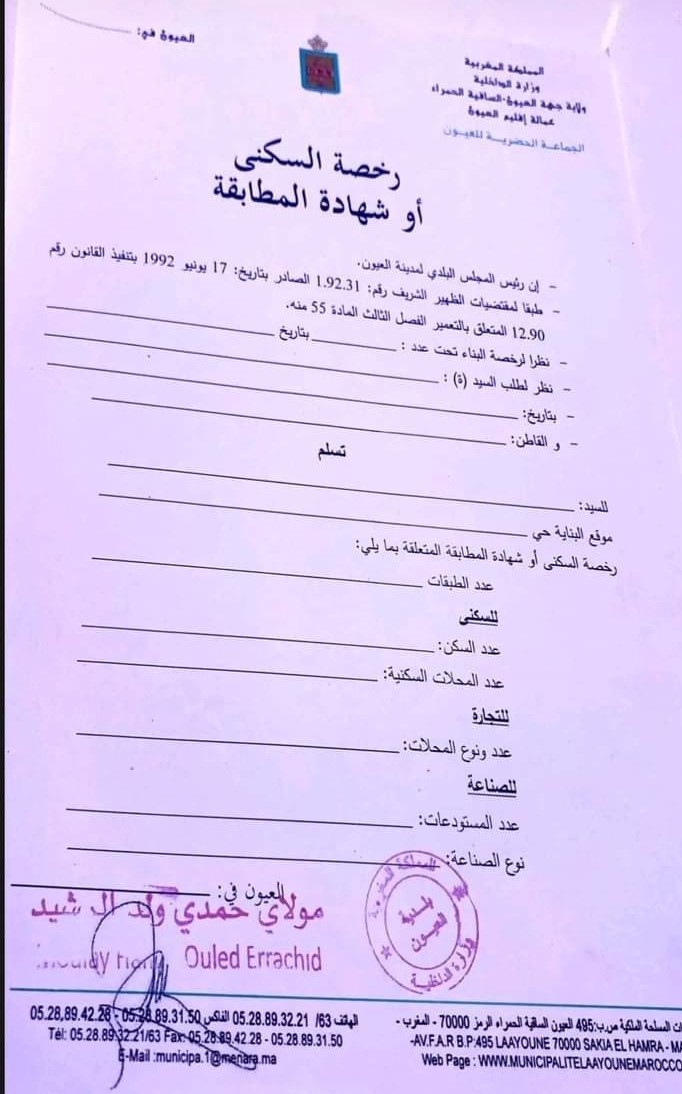 المملكة المغربية
وزارة الداخلية
ولاية جهة العيون-الساقية الحمراء
عمالة إقليم العيون
الجماعة الحضرية للعيون
العيون في:
رخصة السكنى
أو شهادة المطابقة
- إن رئيس المجلس البلدي لمدينة العيون.
- طبقا لمقتضيات الظهير الشريف رقم: 1.92.31 الصادر بتاريخ: 17 يونيو 1992 بتنفيذ القانون رقم
12.90 المتعلق بالتعمير الفصل الثالث المادة 55 منه.
- نظرا لرخصة البناء تحت عدد : بتاريخ
- نظر لطلب السيد (ة) :
- بتاريخ:
- و القاطن:
تسلم
للسيد:
موقع البناية حي
رخصة السكنى أو شهادة المطابقة المتعلقة بما يلي:
عدد الطبقات
للسكنى
عدد السكن:
عدد المحلات السكنية:
للتجارة
عدد ونوع المحلات:
للصناعة
عدد المستودعات:
نوع الصناعة:
العيون في:
المملكة المغربية
بلدية
العيون
وزارة الداخلية
مولاي حمدي ولد الرشيد
Ouled Errachid
ات المسلحة الملكية ص.ب:495 العيون الساقية الحمراء الرمز 70000 - المغرب -
الهاتف 63/ 05.28.89.32.21 الفاكس 05.28.89.31.50 - 05.28.89.42.28
-AV.F.A.R B.P:495 LAAYOUNE 70000 SAKIA EL HAMRA - MA
Tél: 05.28.89.32.21/63 Fax: 05.28.89.42.28 - 05.28.89.31.50
Web Page : WWW.MUNICIPALITELAAYOUNEMAROCCO
E-Mail :municipa.1@menara.ma